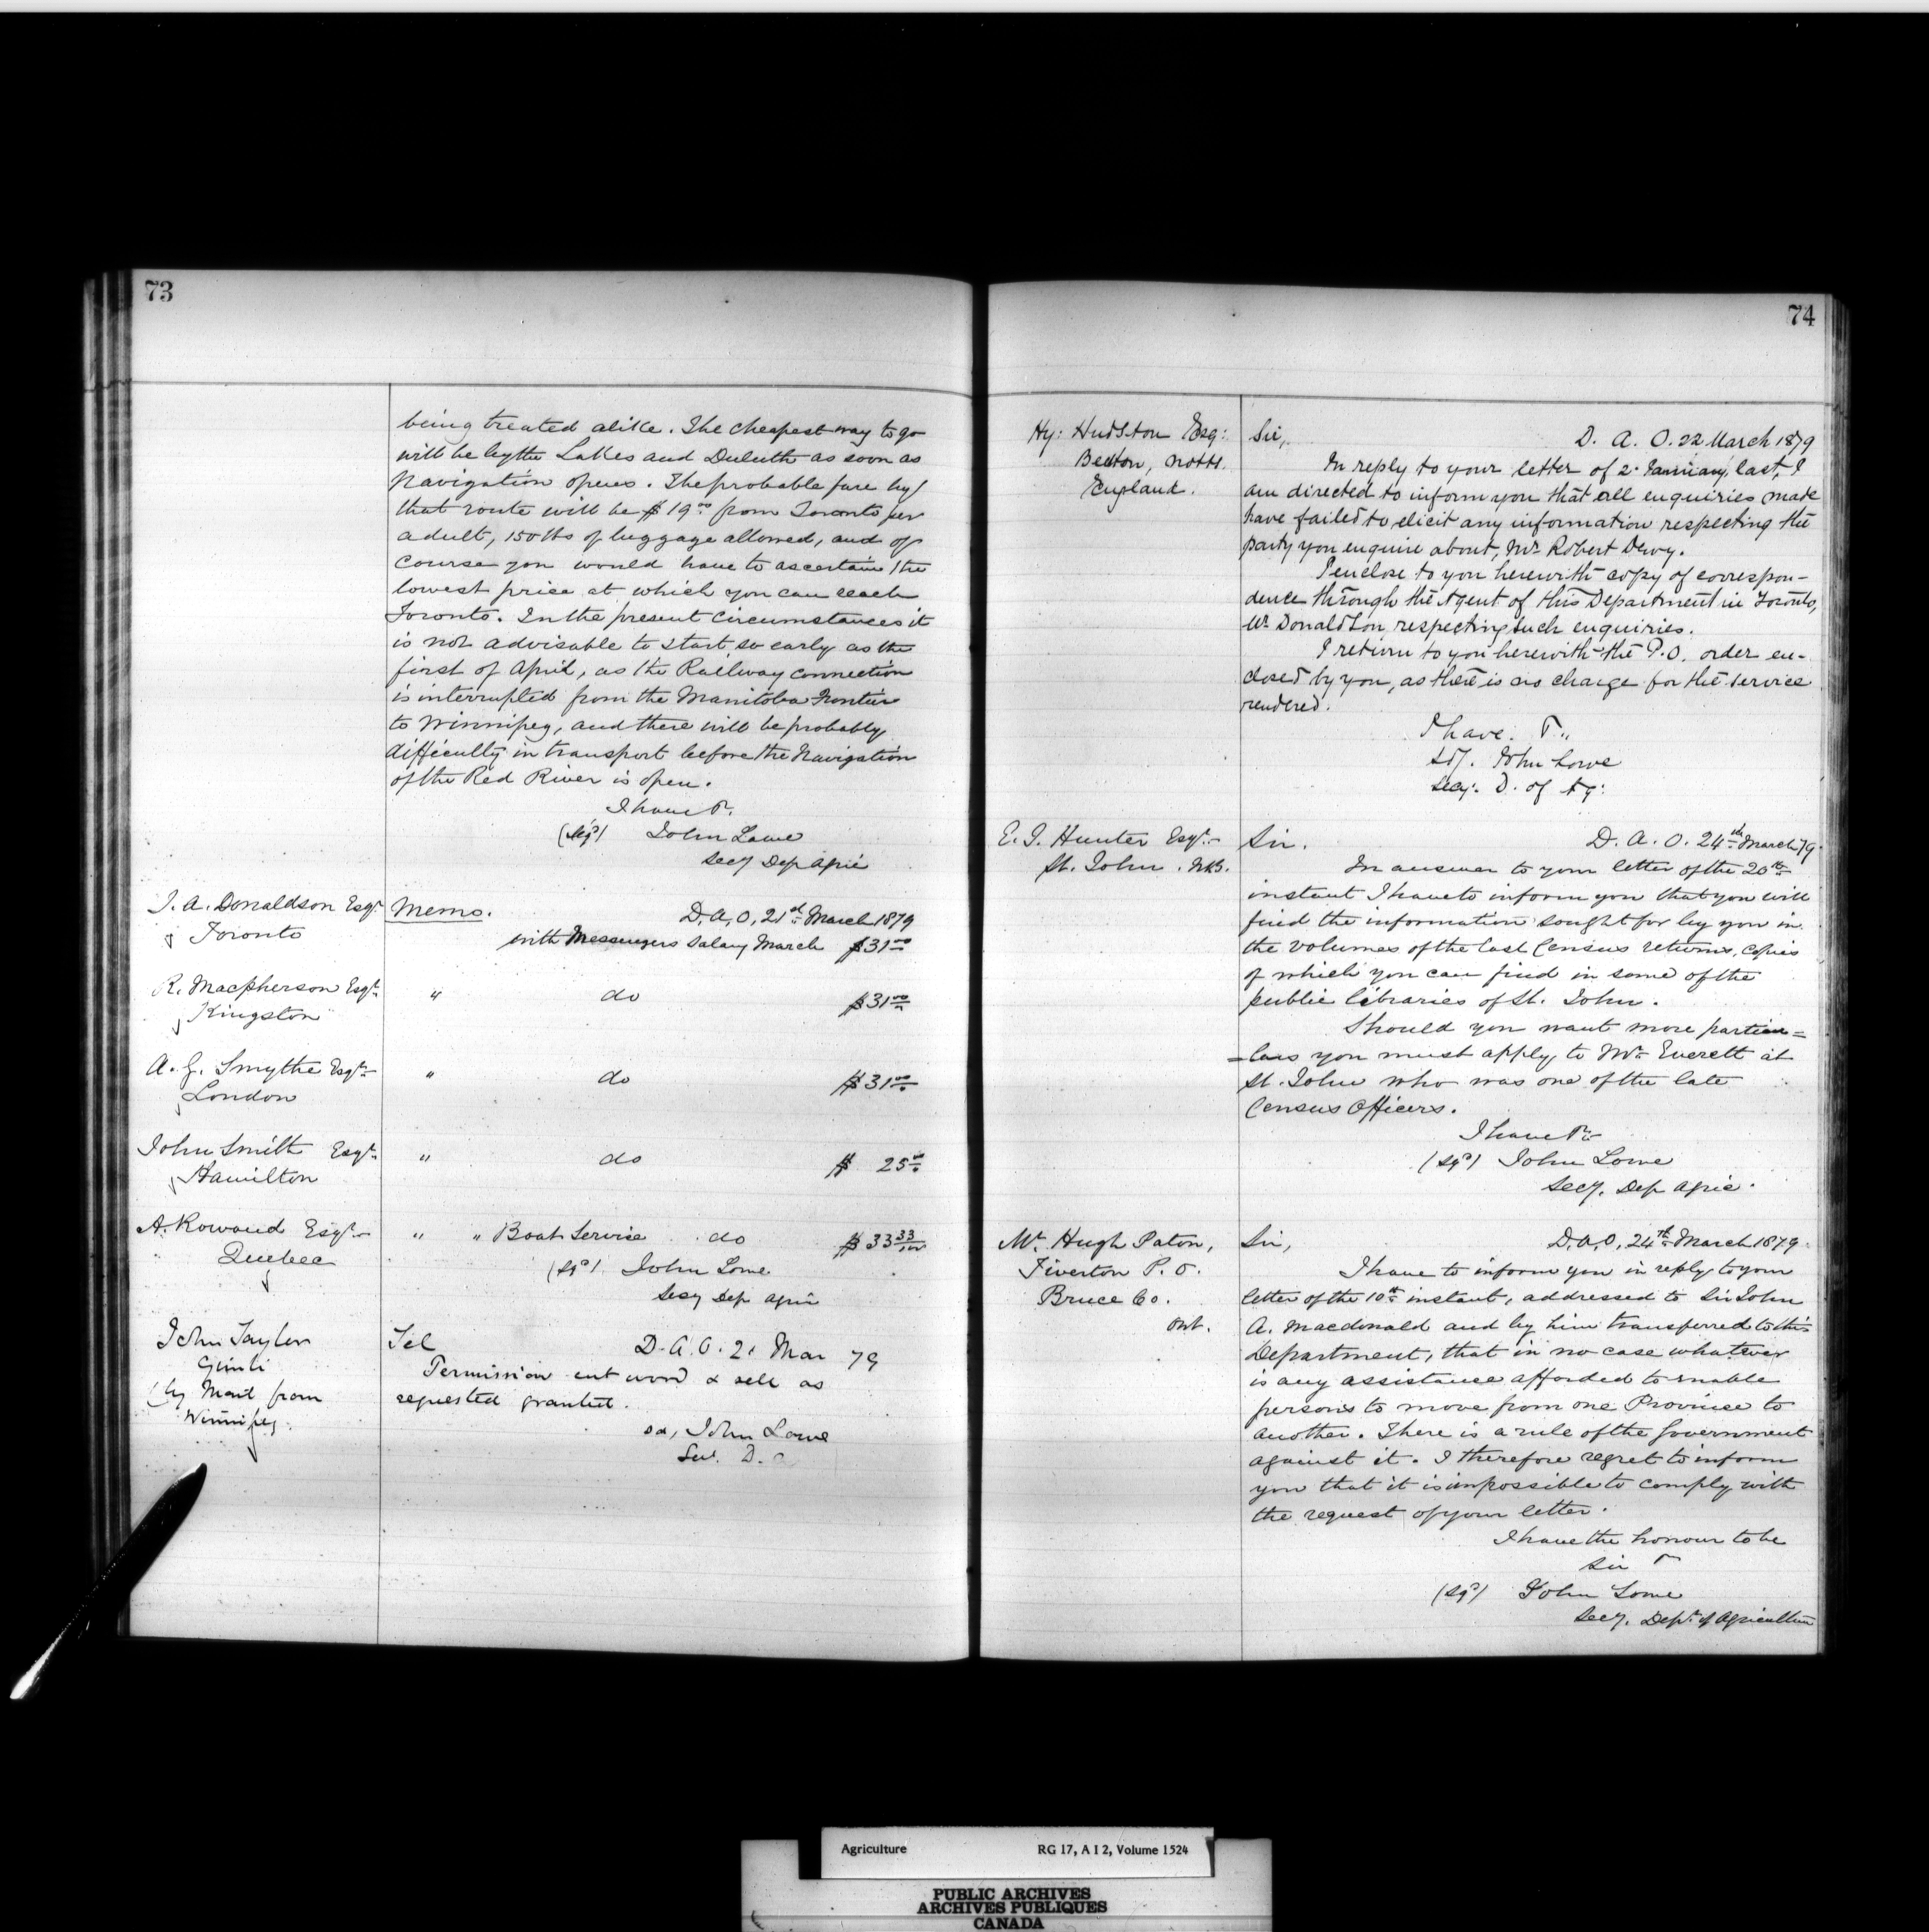 73
being treated alike. The cheapest way to go
will be by the Lakes and Duluth as soon as
Navigation opens. The probable fare by
that route will be $19.00 from Toronto per
adult, 150 lbs of luggage allowed, and of
course you would have to ascertain the
lowest price at which you can reach
Toronto. In the present circumstances it
is not advisable to start so early as the
first of April, as the Railway connection
is interrupted from the Manitoba Frontier
to Winnipeg, and there will be probably
difficulty in transport before the Navigation
of the Red River is open.
I have &c.
(Sgd) John Lowe
Secy Dep Agric
J. A. Donaldson Esqr.
Toronto
Memo. D. A. O, 21st March 1879
with Messengers Salary March $31.00
R. Macpherson Esqr.
Kingston
" do $31.00
A. G. Smythe Esqr.
London
" do $31.00
John Smith Esqr.
Hamilton
" do $25.00
A. Rowand Esqr.
Quebec
" " Boat Service do $33 33/100
(Sgd) John Lowe
Secy Dep Agric
John Taylor
Gimli
(by Mail from
Winnipeg.
Tel D. A. O. 21 Mar 79
Permission cut wood & sell as
requested granted.
sd, John Lowe
Sec. D.
74
Hy: Hudston Esq:
Beeston, Notts.
England.
Sir, D. A. O. 22 March 1879
In reply to your letter of 2 January, last, I
am directed to inform you that all enquiries made
have failed to elicit any information respecting the
party you enquire about, Mr. Robert Dewy.
I enclose to you herewith copy of correspon-
dence through the Agent of this Department in Toronto,
Mr Donaldson respecting such enquiries.
I return to you herewith the P.O. order en-
closed by you, as there is no charge for the service
rendered.
I have. &c.
Sd/. John Lowe
Secy: D. of Ag:
E. J. Hunter Esqr.
St. John. N.B.
Sir. D. A. O. 24th March 79.
In answer to your letter of the 20th
instant I have to inform you that you will
find the information sought for by you in
the volumes of the last Census returns, copies
of which you can find in some of the
public libraries of St. John.
Should you want more particu=
=lars you must apply to Mr. Everett at
St. John who was one of the late
Census Officers.
I have &c
(Sgd) John Lowe
Secy. Dep Agric.
Mr. Hugh Paton,
Tiverton P. O.
Bruce Co.
Ont.
Sir, D. A. O, 24th March 1879.
I have to inform you in reply to your
letter of the 10th instant, addressed to Sir John
A. Macdonald and by him transferred to this
Department, that in no case whatever
is any assistance afforded to enable
persons to move from one Province to
another. There is a rule of the Government
against it. I therefore regret to inform
you that it is impossible to comply with
the request of your letter.
I have the honour to be
Sir &c
(Sgd) John Lowe
Secy. Dept. of Agriculture
Agriculture RG 17, A I 2, Volume 1524
PUBLIC ARCHIVES
ARCHIVES PUBLIQUES
CANADA